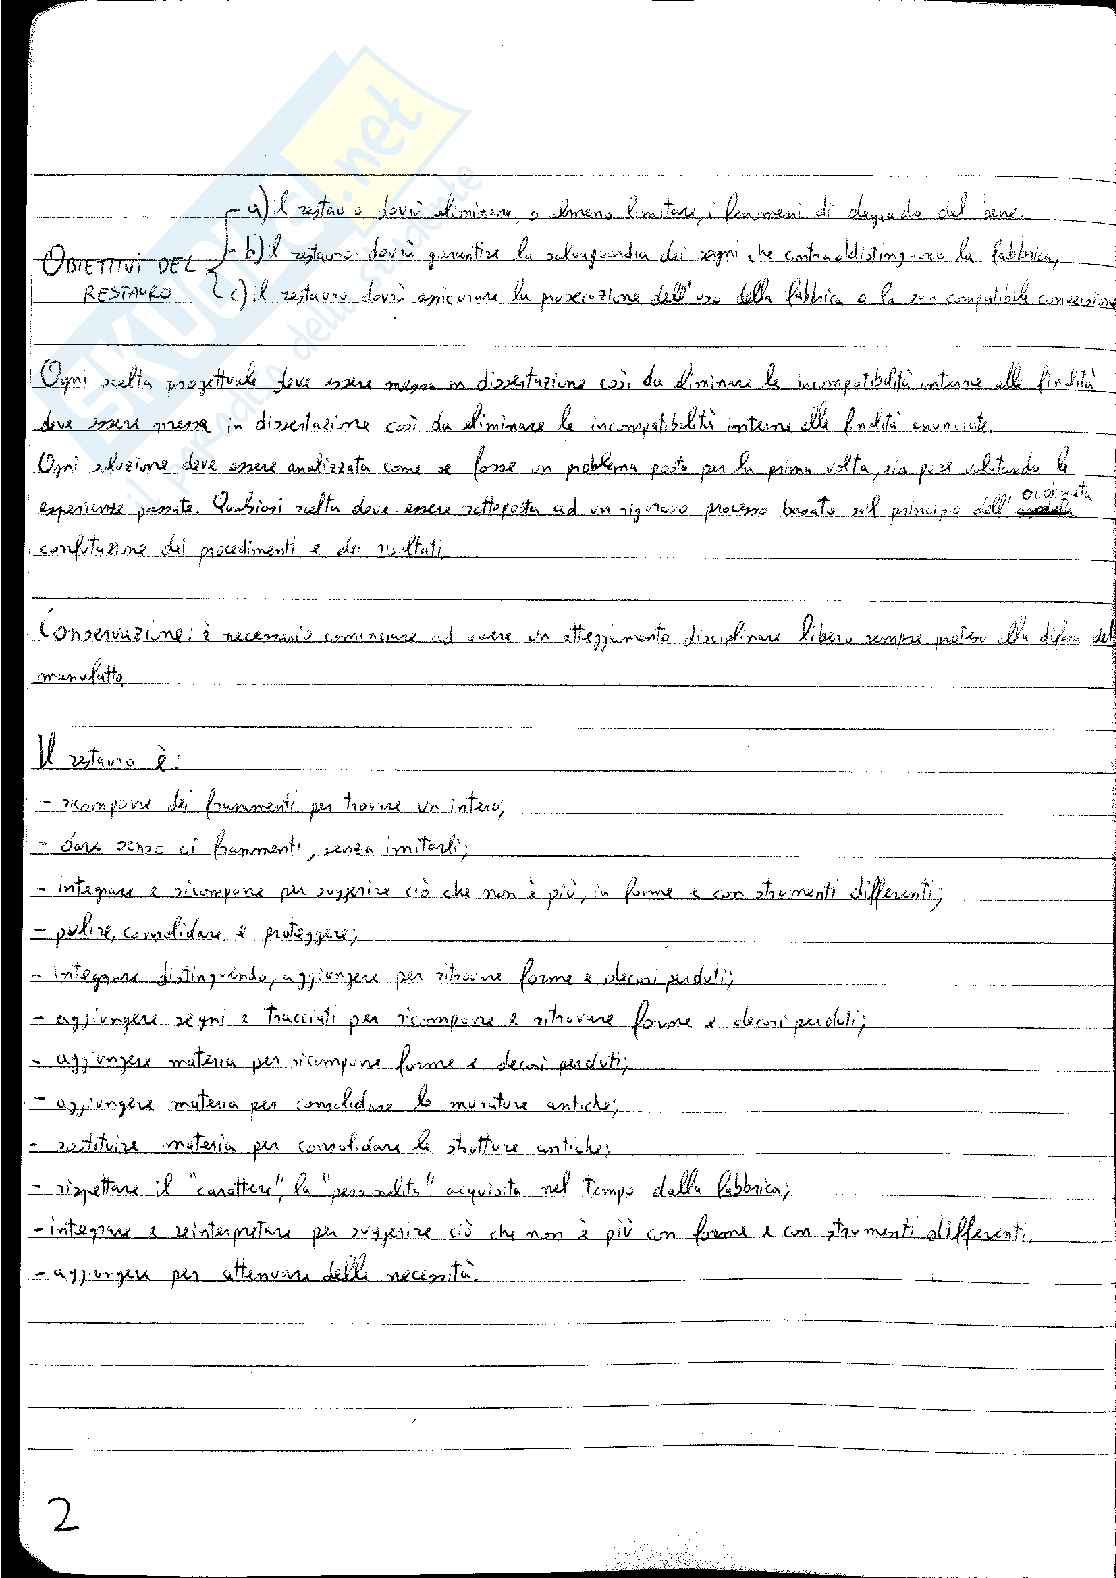 a) Il restauro dovrà eliminare, o almeno limitare, i fenomeni di degrado del bene.
OBIETTIVI DEL b) il restauro dovrà garantire la salvaguardia dei segni che contraddistinguono la fabbrica,
RESTAURO c) il restauro dovrà assicurare la prosecuzione dell'uso della fabbrica o la sua compatibile conversione
Ogni scelta progettuale deve essere messa in dissertazione così da eliminare le incompatibilità interne alle finalità
deve essere messa in dissertazione così da eliminare le incompatibilità interne alle finalità enunciate.
Ogni soluzione deve essere analizzata come se fosse un problema posto per la prima volta, sia pure valutando le
esperienze passate. Qualsiasi scelta deve essere sottoposta ad un rigoroso processo basato sul principio dell'ordinata
confutazione dei procedimenti e dei risultati.
Conservazione: è necessario cominciare ad avere un atteggiamento disciplinare libero sempre proteso alla difesa del
manufatto.
Il restauro è:
- ricomporre dei frammenti per trovare un intero;
- dare senso ai frammenti, senza imitarli;
- integrare e ricomporre per suggerire ciò che non è più, in forme e con strumenti differenti;
- pulire, consolidare e proteggere;
- integrare distinguendo, aggiungere per ritrovare forme e decori perduti;
- aggiungere segni e tracciati per ricomporre e ritrovare forme e decori perduti;
- aggiungere materia per ricomporre forme e decori perduti;
- aggiungere materia per consolidare le murature antiche;
- restituire materia per consolidare le strutture antiche;
- rispettare il "carattere", la "personalità" acquisita nel tempo dalla fabbrica;
- integrare e reinterpretare per suggerire ciò che non è più con forme e con strumenti differenti.
- aggiungere per attenuare delle necessità.
2
SKUOLA.net
il portale dello studente